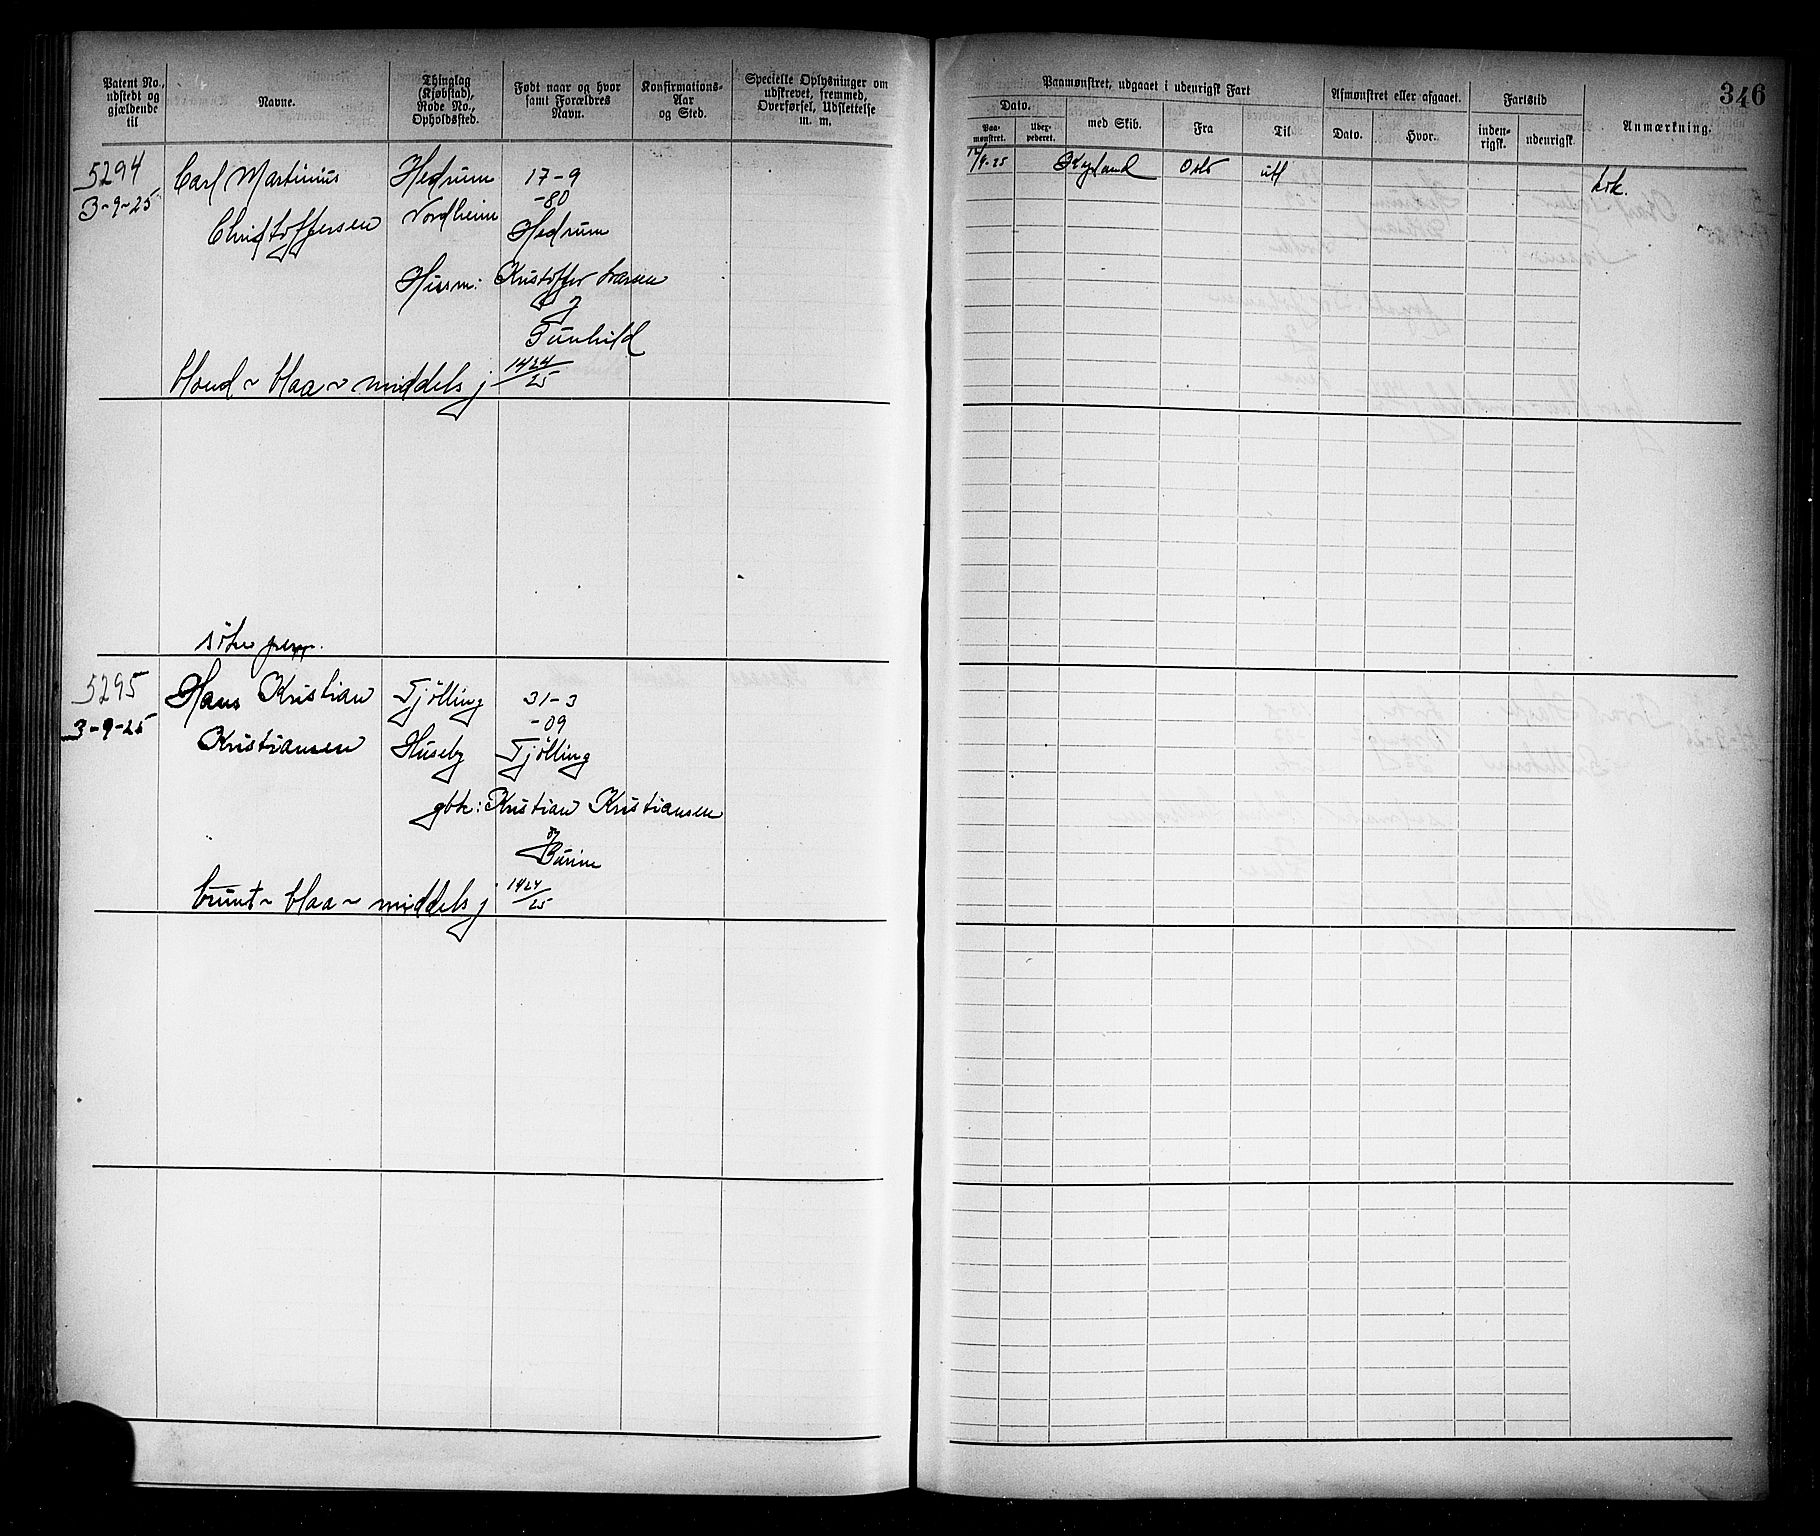 346
Patent No., udstedt og gjældende til
Navne.
Thinglag (Kjøbstad), Rode No., Opholdssted.
Født naar og hvor samt Forældres Navn.
Konfirmations-Aar og Sted.
Specielle Oplysninger om udskrevet, fremmed, Overførsel, Udslettelse m. m.
Paamønstret, udgaaet i udenrigsk Fart
Afmønstret eller afgaaet.
Fartstid
Anmærkning.
Dato.
Paa-mønstret.
Udex-pederet.
med Skib.
Fra
Til
Dato.
Hvor.
inden-rigsk.
udenrigsk.
5294
3-9-25
Carl Martinius
Christoffersen
Hedrum
Nordheim
17-9
-80
Hedrum
Husm: Kristoffer Larsen
og
Gunhild
blond ~ blaa ~ middels j 1424/25
12/9-25 Oslo utl
søke perm.
5295
3-9-25
Hans Kristian
Kristiansen
Tjølling
Huseby
31-3
-09
Tjølling
gbk: Kristian Kristiansen
og
brunt ~ blaa ~ middels j 1424/25